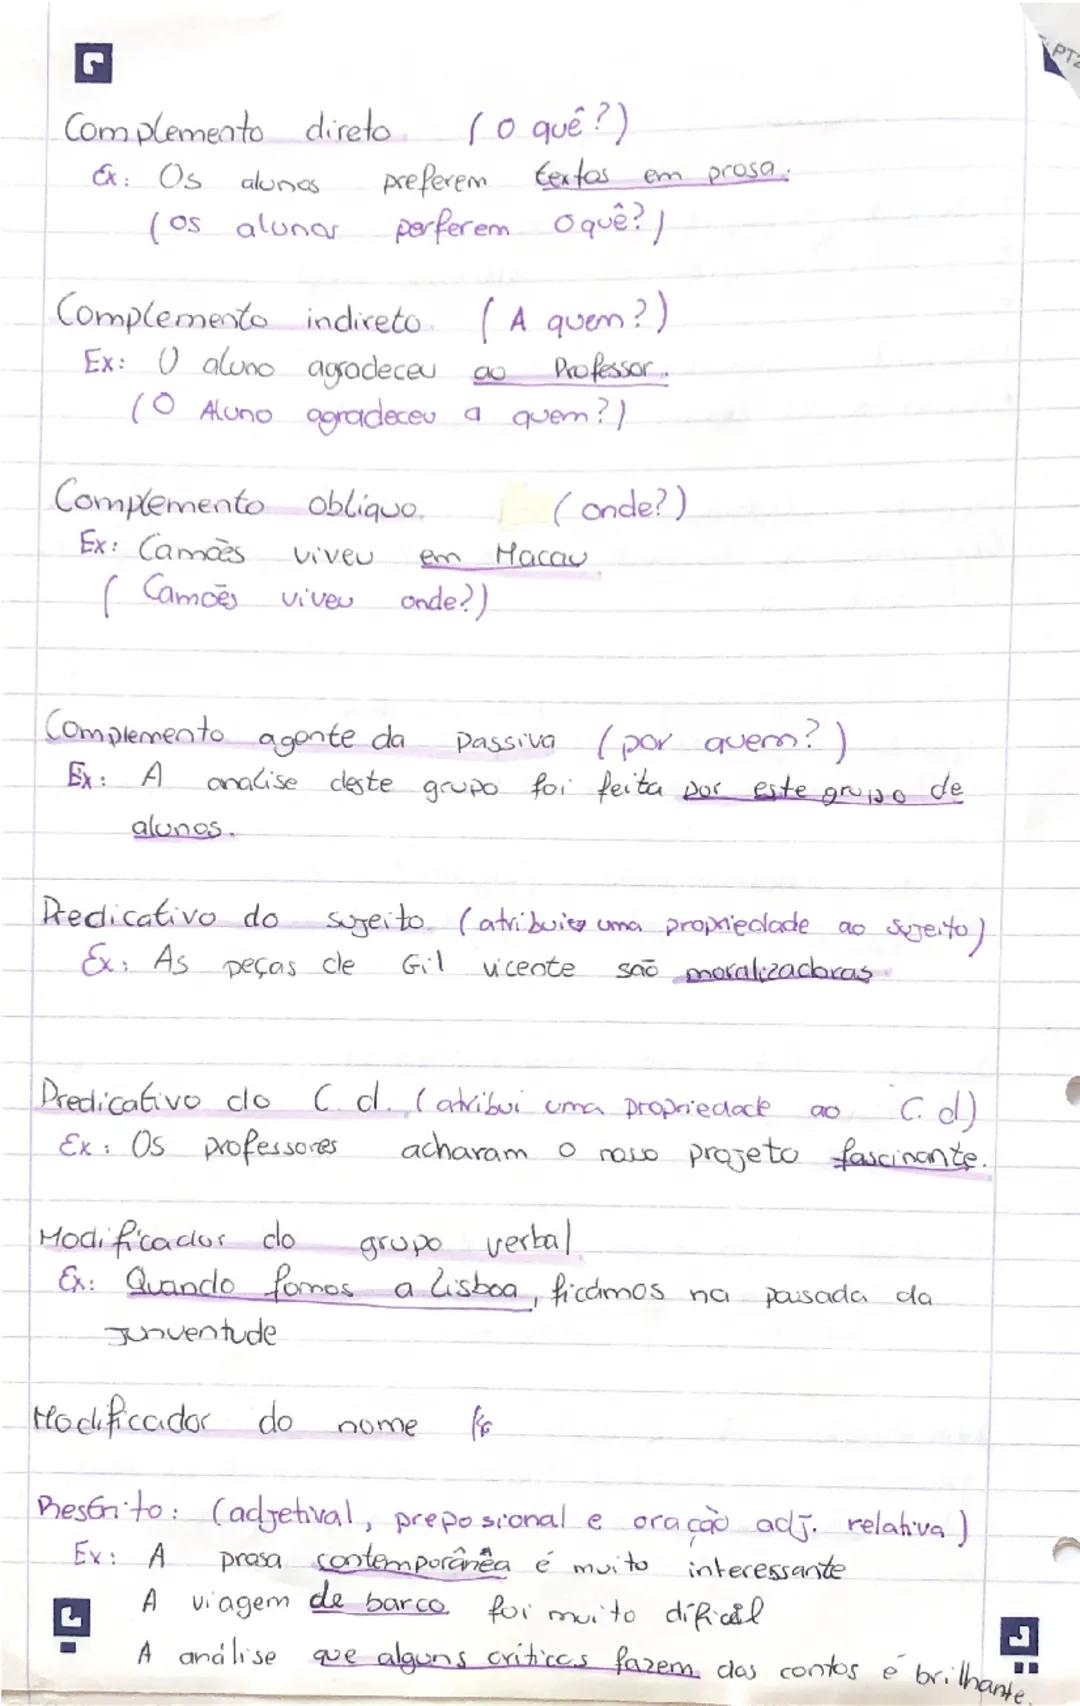 PT2
Complemento direto. (o quê?)
Ex: Os alunos preferem textos em prosa.
(os alunos perferem o quê?)
Complemento indireto. (A quem?)
Ex: O aluno agradeceu ao Professor.
(O Aluno agradeceu a quem?)
Complemento obliquo. (onde?)
Ex: Camões viveu em Macau
(Camões viveu onde?)
Complemento agente da passiva (por quem?)
Ex: A analise deste grupo foi feita por este grupo de
alunos.
Predicativo do sujeito. (atribui uma propriedade ao sujeito)
Ex: As peças de Gil vicente são moralizadoras.
Predicativo do C. d. (atribui uma propriedade ao C. d)
Ex: Os professores acharam o nosso projeto fascinante.
Modificador do grupo verbal
Ex: Quando fomos a Lisboa, ficámos na pousada da
Junventude
Modificador do nome
Restrito: (adjetival, preposional e oração adj. relativa)
Ex: A prosa contemporânêa é muito interessante
A viagem de barco. foi muito díficil
A análise que alguns criticos fazem das contos é brilhante.